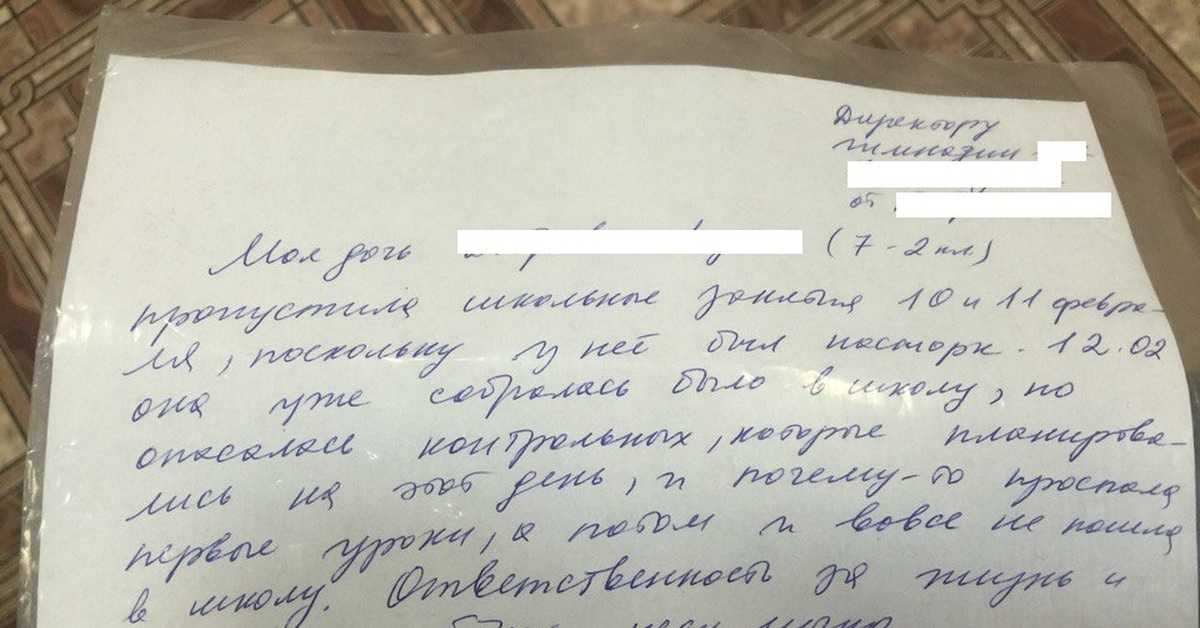 Директору
гимназии
от
Моя дочь (7-2 кл)
пропустила школьные занятия 10 и 11 февра-
ля, поскольку у неё был насморк. 12.02
она уже собралась было в школу, но
опасалась контрольных, которые планирова-
лись на этот день, и почему-то проспала
первые уроки, а потом и вовсе не пошла
в школу. Ответственность за жизнь и